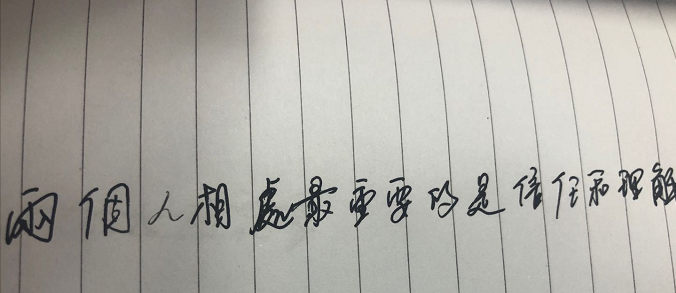 兩個人相處最重要的是信任和理解